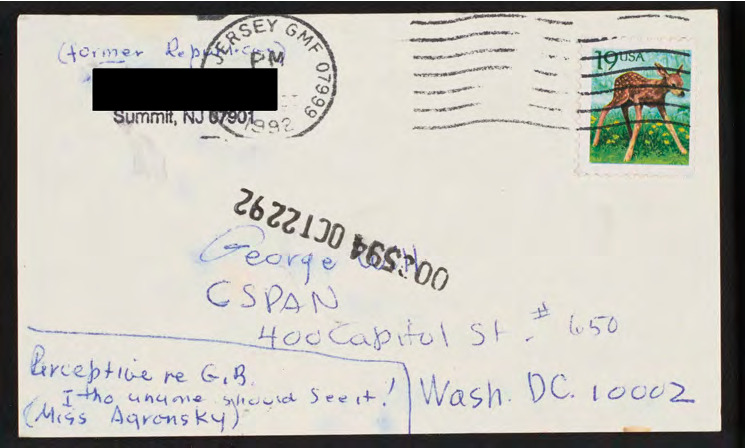 (former Republican)
JERSEY GMF 07999
PM
1992
19 USA
Summit, NJ 07901
OCT2292
George
CSPAN
400 Capitol St. # 650
Wash. DC. 10002
Perceptive re G.B.
I tho anyone should see it!
(Miss Agronsky)